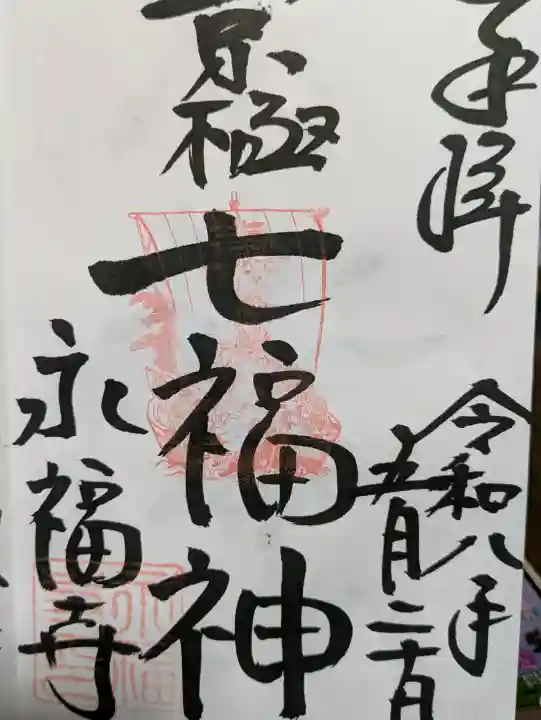 奉拝
令和八年
五月二十日
京極
七福神
永福寺